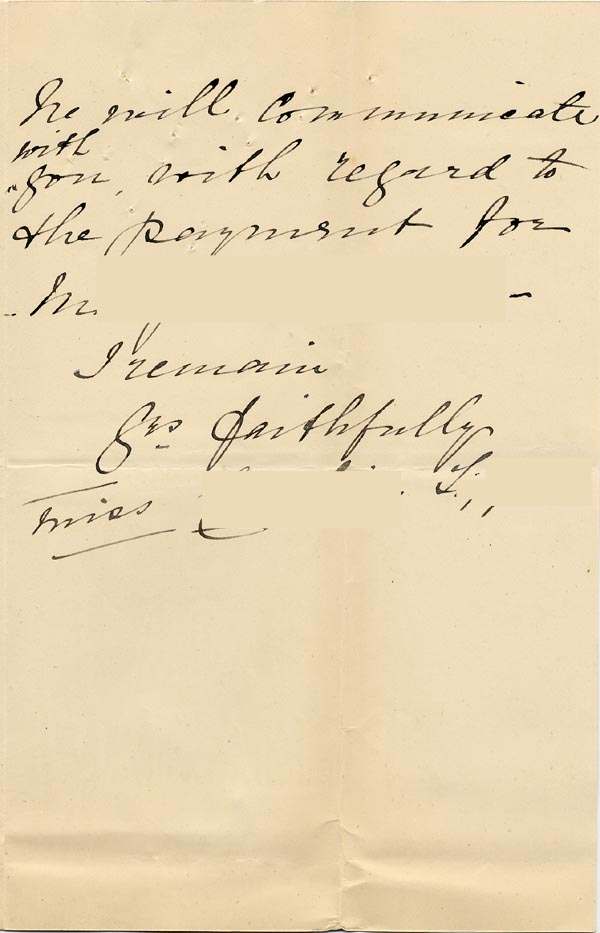 he will communicate
with
you, with regard to
the payment for
M.
I remain
yrs faithfully
Miss